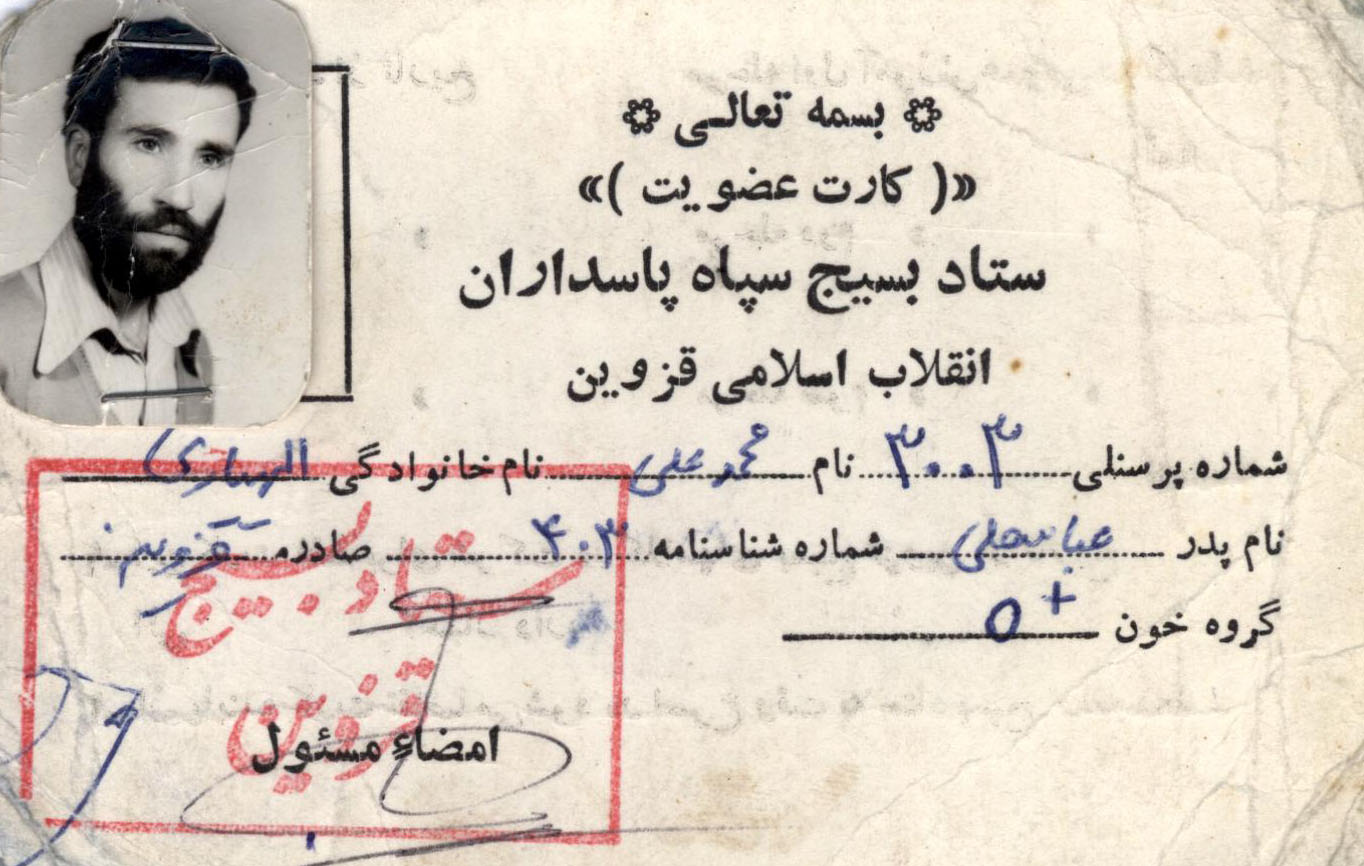 بسمه تعالی
«( کارت عضویت )»
ستاد بسیج سپاه پاسداران
انقلاب اسلامی قزوین
شماره پرسنلی ۳۰۰۳ نام محمد علی نام خانوادگی
نام پدر عباسعلی شماره شناسنامه ۴۰۳ صادره قزوین
گروه خون O+
ستاد بسیج
قزوین
امضاءِ مسئول